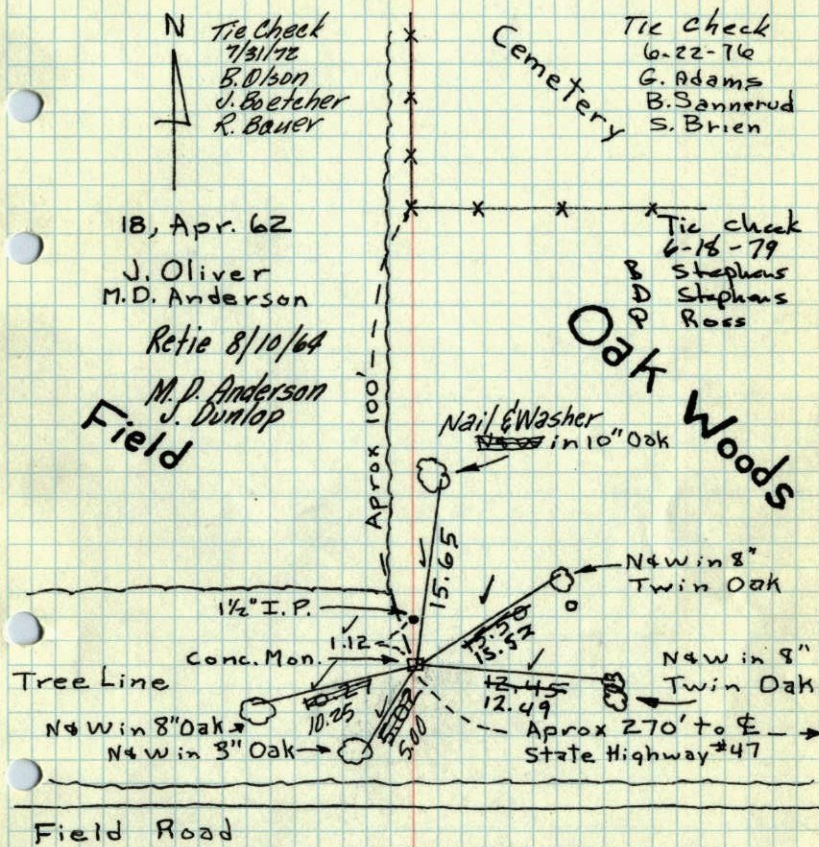 N
Tie Check
7/31/72
B. Olson
J. Boetcher
R. Bauer
Cemetery
Tie Check
6-22-76
G. Adams
B. Sannerud
S. Brien
18, Apr. 62
J. Oliver
M.D. Anderson
Retie 8/10/64
M.D. Anderson
J. Dunlop
Tie check
6-18-79
B Stephens
D Stephens
R Ross
Field
Oak Woods
Aprox 100'
Nail & Washer
in 10" Oak
15.65
N&W in 8"
Twin Oak
1½" I.P.
1.12
15.50
15.52
Conc. Mon.
Tree Line
10.27
10.25
12.45
12.49
N&W in 8"
Twin Oak
N&W in 8" Oak
N&W in 3" Oak
5.02
5.00
Aprox 270' to ℄
State Highway #47
Field Road